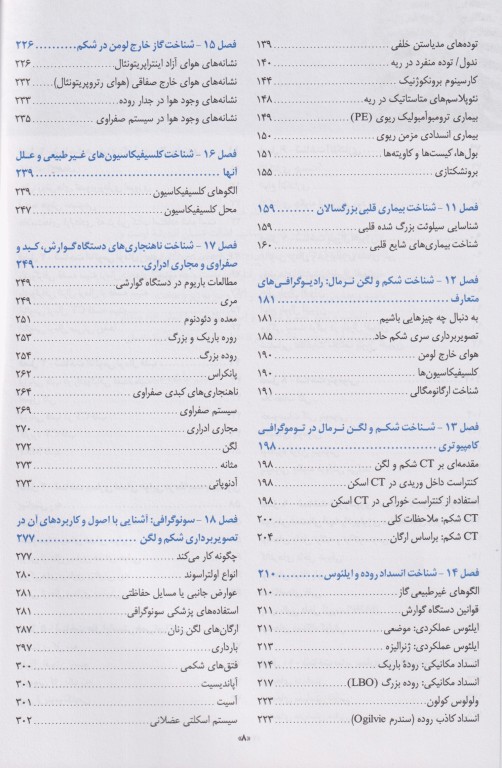 توده‌های مدیاستن خلفی ۱۳۹
ندول/ توده منفرد در ریه ۱۴۰
کارسینوم برونکوژنیک ۱۴۴
نئوپلاسم‌های متاستاتیک در ریه ۱۴۸
بیماری ترومبوآمبولیک ریوی (PE) ۱۴۹
بیماری انسدادی مزمن ریوی ۱۵۰
بول‌ها، کیست‌ها و کاویته‌ها ۱۵۱
برونشکتازی ۱۵۵
فصل ۱۱ - شناخت بیماری قلبی بزرگسالان ۱۵۹
شناسایی سیلوئت بزرگ شده قلبی ۱۵۹
شناخت بیماری‌های شایع قلبی ۱۶۰
فصل ۱۲ - شناخت شکم و لگن نرمال: رادیوگرافی‌های
متعارف ۱۸۱
به دنبال چه چیزهایی باشیم ۱۸۱
تصویربرداری سری شکم حاد ۱۸۵
هوای خارج لومن ۱۹۰
کلسیفیکاسیون‌ها ۱۹۰
شناخت ارگانومگالی ۱۹۱
فصل ۱۳ - شناخت شکم و لگن نرمال در توموگرافی
کامپیوتری ۱۹۸
مقدمه‌ای بر CT شکم و لگن ۱۹۸
کنتراست داخل وریدی در CT اسکن ۱۹۸
استفاده از کنتراست خوراکی در CT اسکن ۱۹۸
CT شکم: ملاحظات کلی ۲۰۰
CT شکم: براساس ارگان ۲۰۴
فصل ۱۴ - شناخت انسداد روده و ایلئوس ۲۱۰
الگوهای غیرطبیعی گاز ۲۱۰
قوانین دستگاه گوارش ۲۱۱
ایلئوس عملکردی: موضعی ۲۱۱
ایلئوس عملکردی: ژنرالیزه ۲۱۳
انسداد مکانیکی: رودهٔ باریک ۲۱۴
انسداد مکانیکی: روده بزرگ (LBO) ۲۱۷
ولولوس کولون ۲۲۳
انسداد کاذب روده (سندرم Ogilvie) ۲۲۳
فصل ۱۵ - شناخت گاز خارج لومن در شکم ۲۲۶
نشانه‌های هوای آزاد اینتراپریتونئال ۲۲۶
نشانه‌های هوای خارج صفاقی (هوای رتروپریتونئال) ۲۳۲
نشانه‌های وجود هوا در جدار روده ۲۳۳
نشانه‌های وجود هوا در سیستم صفراوی ۲۳۵
فصل ۱۶ - شناخت کلسیفیکاسیون‌های غیرطبیعی و علل
آنها ۲۳۹
الگوهای کلسیفیکاسیون ۲۳۹
محل کلسیفیکاسیون ۲۴۷
فصل ۱۷ - شناخت ناهنجاری‌های دستگاه گوارش، کبد و
صفراوی و مجاری ادراری ۲۴۹
مطالعات باریوم در دستگاه گوارشی ۲۴۹
مری ۲۴۹
معده و دئودنوم ۲۵۱
روره باریک و بزرگ ۲۵۳
روده بزرگ ۲۵۴
پانکراس ۲۶۲
ناهنجاری‌های کبدی صفراوی ۲۶۴
سیستم صفراوی ۲۶۹
مجاری ادراری ۲۷۰
لگن ۲۷۲
مثانه ۲۷۳
آدنوپاتی ۲۷۳
فصل ۱۸ - سونوگرافی: آشنایی با اصول و کاربردهای آن در
تصویربرداری شکم و لگن ۲۷۷
چگونه کار می‌کند ۲۷۷
انواع اولتراسوند ۲۸۰
عوارض جانبی یا مسایل حفاظتی ۲۸۱
استفاده‌های پزشکی سونوگرافی ۲۸۱
ارگان‌های لگن زنان ۲۸۷
بارداری ۲۹۷
فتق‌های شکمی ۳۰۰
آپاندیسیت ۳۰۱
آسیت ۳۰۱
سیستم اسکلتی عضلانی ۳۰۲
«۸»